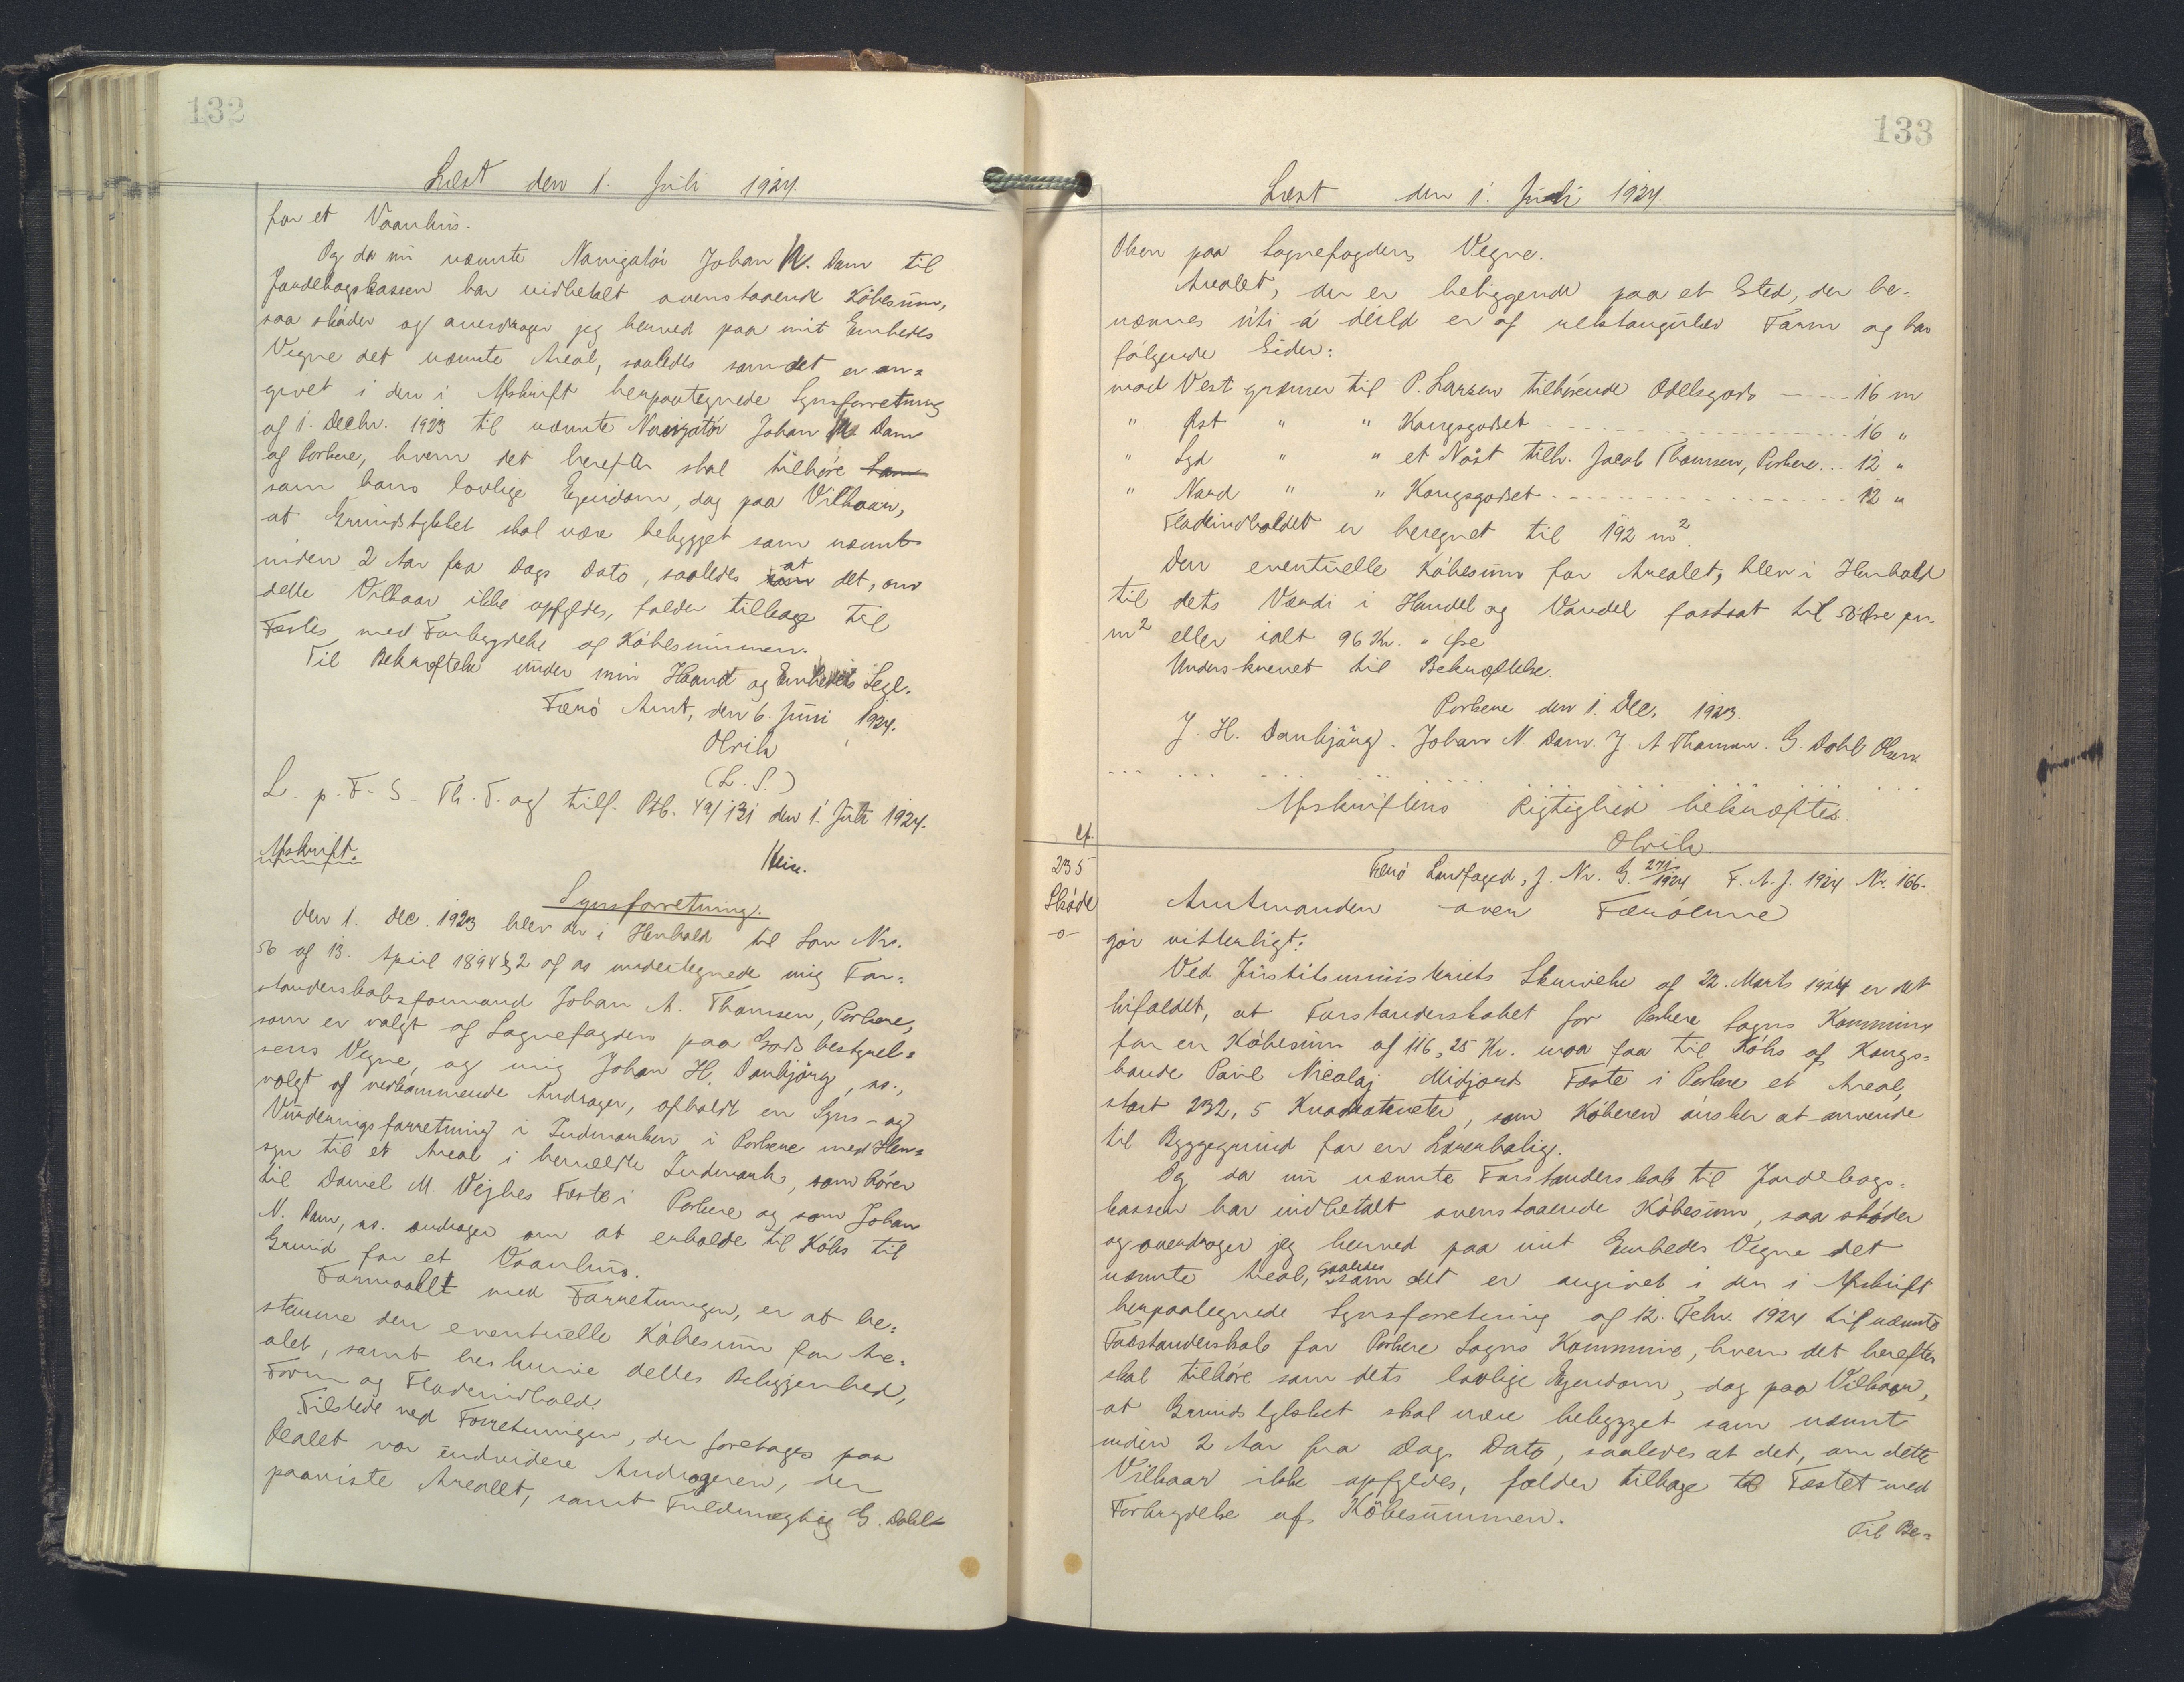 132
Læst den 1. Juli 1924.
for et Vaanhus.
Og da nu nævnte Navigatör Johan N. Dam til
Jordebogskassen har indbetalt ovenstaaende Köbesum,
saa sköder og overdrager jeg herved paa mit Embedes
Vegne det nævnte Areal, saaledes som det er an=
givet i den i Afskrift herpaategnede Synsforretning
af 1. Decbr. 1923 til nævnte Navigatör Johan N. Dam
af Porkere, hvem det herefter skal tilhöre
som hans lovlige Ejendom, dog paa Vilkaar,
at Grundstykket skal være bebygget som nævnt
inden 2 Aar fra Dags Dato, saaledes at det, om
dette Vilkaar ikke opfyldes, falder tilbage til
Fæstet med Forbrydelse af Köbesummen.
Til Bekræftelse under min Haand og Embedets Segl.
Færö Amt, den 6. Juni 1924.
Olrik
(L. S.)
L. p. F. S. Th. T. og tilf. Ptb. 49/131 den 1. Juli 1924.
Afskrift.
Synsforretning.
den 1. Dec. 1923 blev der i Henhold til Lov Nr.
56 af 13. April 1894 § 2 af os undertegnede mig For=
standerskabsformand Johan A. Thomsen, Porkere,
som er valgt af Sognefogden paa Godsbestyrel=
sens Vegne, og mig Johan H. Danbjörg, ss.,
valgt af vedkommende Andrager, afholdt en Syns- og
Vurderingsforretning i Indmarken i Porkere med Hen=
syn til et Areal i bemeldte Indmark, som hörer
til Daniel M. Vejhes Fæste i Porkere og som Johan
N. Dam, ss. andrager om at erholde til Köbs til
Grund for et Vaanhus.
Formaalet med Forretningen, er at be=
stemme den eventuelle Köbesum for Are=
alet, samt beskrive dettes Beliggenhed,
Form og Fladeindhold.
Tilstede ved Forretningen, der foretages paa
Arealet var endvidere Andrageren, der
paaviste Arealet, samt Fuldmægtig G. Dahl=
133
Læst den 1. Juli 1924.
Olsen paa Sognefogdens Vegne.
Arealet, der er beliggende paa et Sted, der be=
nævnes úti á deild er af rektangulær Form og har
fölgende Sider:
mod Vest grænser til P. Larsen tilhörende Odelsgods 16 m
" Øst " " Kongsgodset 16 "
" Syd " " et Nøst tilh. Jacob Thomsen, Porkere... 12 "
" Nord " " Kongsgodset 12 "
Fladeindholdet er beregnet til 192 m².
Den eventuelle Köbesum for Arealet, blev i Henhold
til dets Værdi i Handel og Vandel fastsat til 50 Øre pr.
m² eller ialt 96 Kr. " Øre
Underskrevet til Bekræftelse.
Porkere den 1. Dec. 1923.
J. H. Danbjörg. Johan N. Dam. J. A Thomsen. G. Dahl Olsen
Afskriftens Rigtighed bekræftes.
Olrik
235
Sköde
-o-
Færö Landfoged, J. Nr. G. 271/1924 F. A. J. 1924 Nr. 166.
Amtmanden over Færöerne
gör vitterligt:
Ved Justitsministeriets Skrivelse af 22. Marts 1924 er det
bifaldet, at Forstanderskabet for Porkere Sogns Kommune
for en Köbesum af 116,25 Kr. maa faa til Köbs af Kongs=
bonde Poul Nicolaj Midjords Fæste i Porkere et Areal,
stort 232,5 Kvadratmeter, som Köberen önsker at anvende
til Byggegrund for en Lærerbolig.
Og da nu nævnte Forstanderskab til Jordebogs=
kassen har indbetalt ovenstaaende Köbesum, saa sköder
og overdrager jeg herved paa mit Embedes Vegne det
nævnte Areal, saaledes som det er angivet i den i Afskrift
herpaategnede Synsforretning af 12. Febr. 1924 til nævnte
Forstanderskab for Porkere Sogns Kommune, hvem det herefter
skal tilhöre som dets lovlige Ejendom, dog paa Vilkaar,
at Grundstykket skal være bebygget som nævnt
inden 2 Aar fra Dags Dato, saaledes at det, om dette
Vilkaar ikke opfyldes, falder tilbage til Fæstet med
Forbrydelse af Köbesummen.
Til Be=